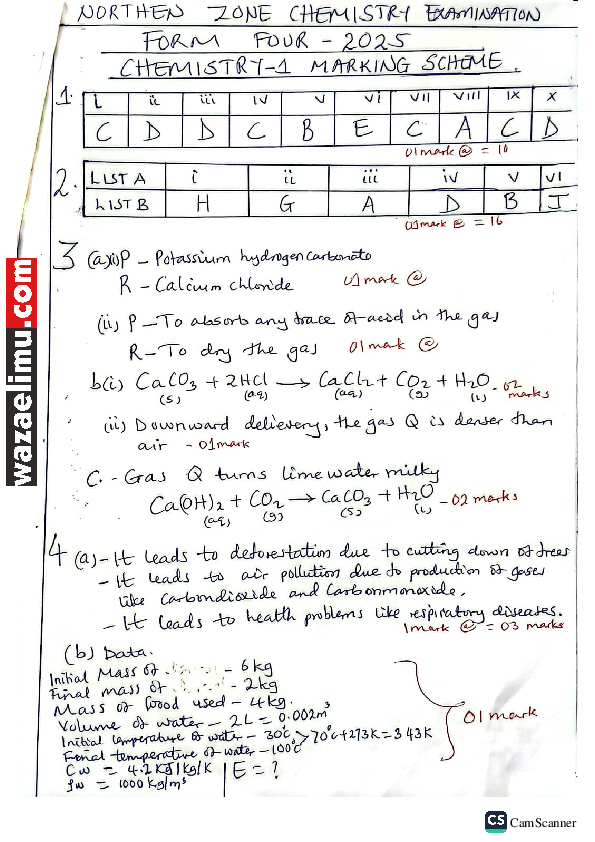 NORTHEN ZONE CHEMISTRY EXAMINATION
FORM FOUR - 2025
CHEMISTRY-1 MARKING SCHEME.
1. i ii iii iv v vi vii viii ix x
C D D C B E C A C D
01 mark @ = 10
2. LIST A i ii iii iv v vi
LIST B H G A D B J
01 mark @ = 16
3 (a)(i) P - Potassium hydrogen carbonate
R - Calcium chloride 01 mark @
(ii) P - To absorb any trace of acid in the gas
R - To dry the gas 01 mark @
b(i) CaCO3 + 2HCl → CaCl2 + CO2 + H2O - 02 marks
(s) (aq) (aq) (g) (l)
(ii) Downward delievery, the gas Q is denser than
air - 01 mark
C. - Gas Q turns lime water milky
Ca(OH)2 + CO2 → CaCO3 + H2O - 02 marks
(aq) (g) (s) (l)
4 (a) - It leads to deforestation due to cutting down of trees
- It leads to air pollution due to production of gases
like Carbondioxide and Carbonmonoxide.
- It leads to health problems like respiratory diseases.
1mark @ = 03 marks
(b) Data.
Initial Mass of - 6kg
Final mass of - 2kg
Mass of Wood used - 4kg.
Volume of water - 2L = 0.002m³
Initial temperature of water - 30°C > 70°C + 273K = 343K
Final temperature of water - 100°C
Cw = 4.2KJ/kg/K E = ?
ρw = 1000kg/m³
01 mark
wazaelimu.com
CS CamScanner